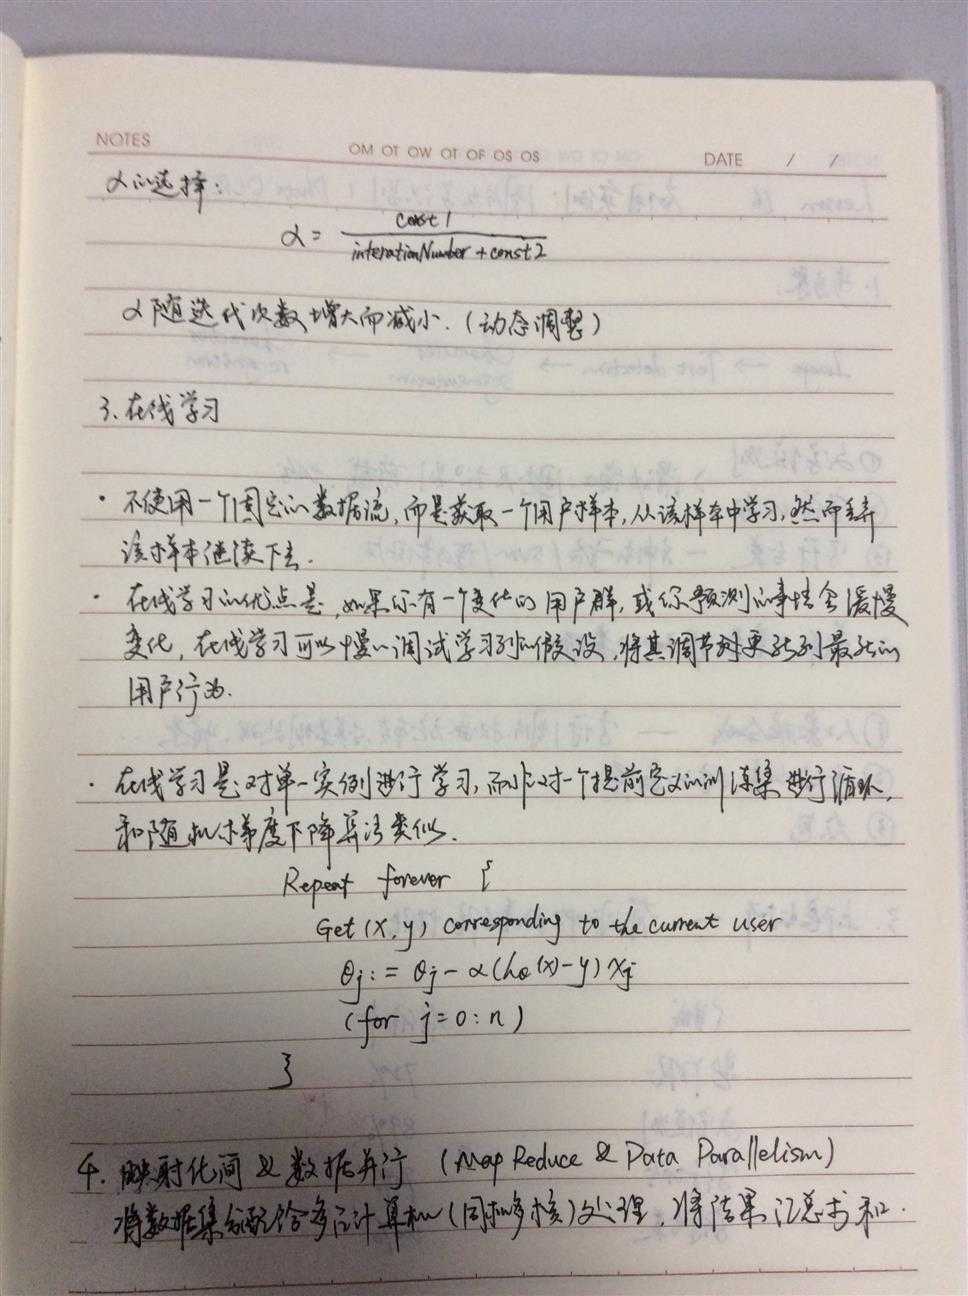 NOTES
OM OT OW OT OF OS OS
DATE / /
α的选择:
α = const1 / interationNumber + const2
α随迭代次数增大而减小.(动态调整)
3. 在线学习
· 不使用一个固定的数据流,而是获取一个用户样本,从该样本中学习,然而丢弃
该样本继续下去.
· 在线学习的优点是,如果你有一个变化的用户群,或你预测的事情会缓慢
变化,在线学习可以慢以调试学习到的假设,将其调节到更新到最新的
用户行为.
· 在线学习是对单一实例进行学习,而非对一个提前定义的训练集进行循环,
和随机梯度下降算法类似.
Repeat forever {
Get (x, y) corresponding to the current user
θj := θj - α(hθ(x)-y) xj
(for j=0:n)
}
4. 映射化间 & 数据并行 (Map Reduce & Data Parallelism)
将数据集分配给多台计算机(同机多核)处理,将结果汇总求和.